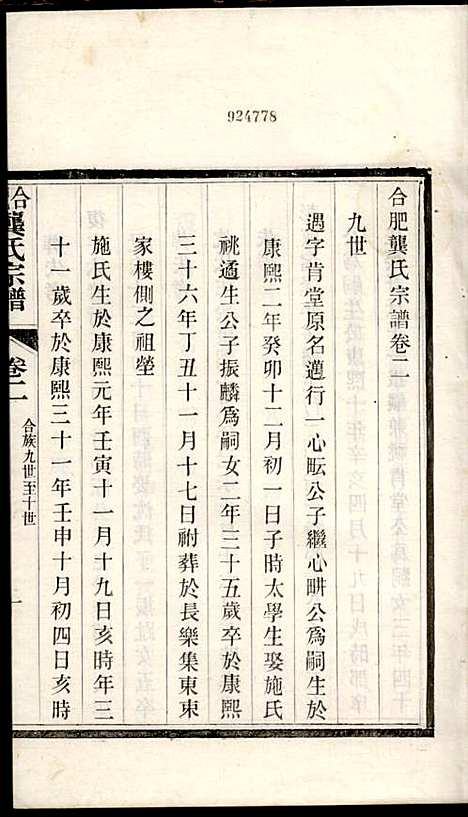 924778
合肥龔氏宗譜卷二
九世
遇字肯堂原名藡行一心畩公子繼心畊公為嗣生於
康熙二年癸卯十二月初一日子時太學生娶施氏
祧遹生公子振麟為嗣女二年三十五歲卒於康熙
三十六年丁丑十一月十七日祔葬於長樂集東東
家樓側之祖塋
施氏生於康熙元年壬寅十一月十九日亥時年三
十一歲卒於康熙三十一年壬申十月初四日亥時
合 龔氏宗譜
卷二
合族九世至十世
一